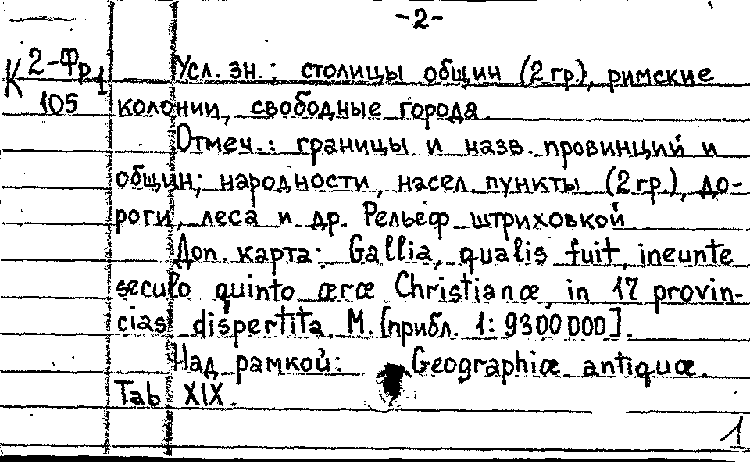 -2-
К 2-Фр1
105
Усл. зн.: столицы общин (2 гр.), римские
колонии, свободные города.
Отмеч.: границы и назв. провинций и
общин; народности, насел. пункты (2 гр.), до-
роги, леса и др. Рельеф штриховкой
Доп. карта: Gallia, qualis fuit, ineunte
seculo quinto æræ Christianæ, in 17 provin-
cias dispertita. М. [прибл. 1:9300000].
Над рамкой: Geographiæ antiquæ.
Tab XIX.
1